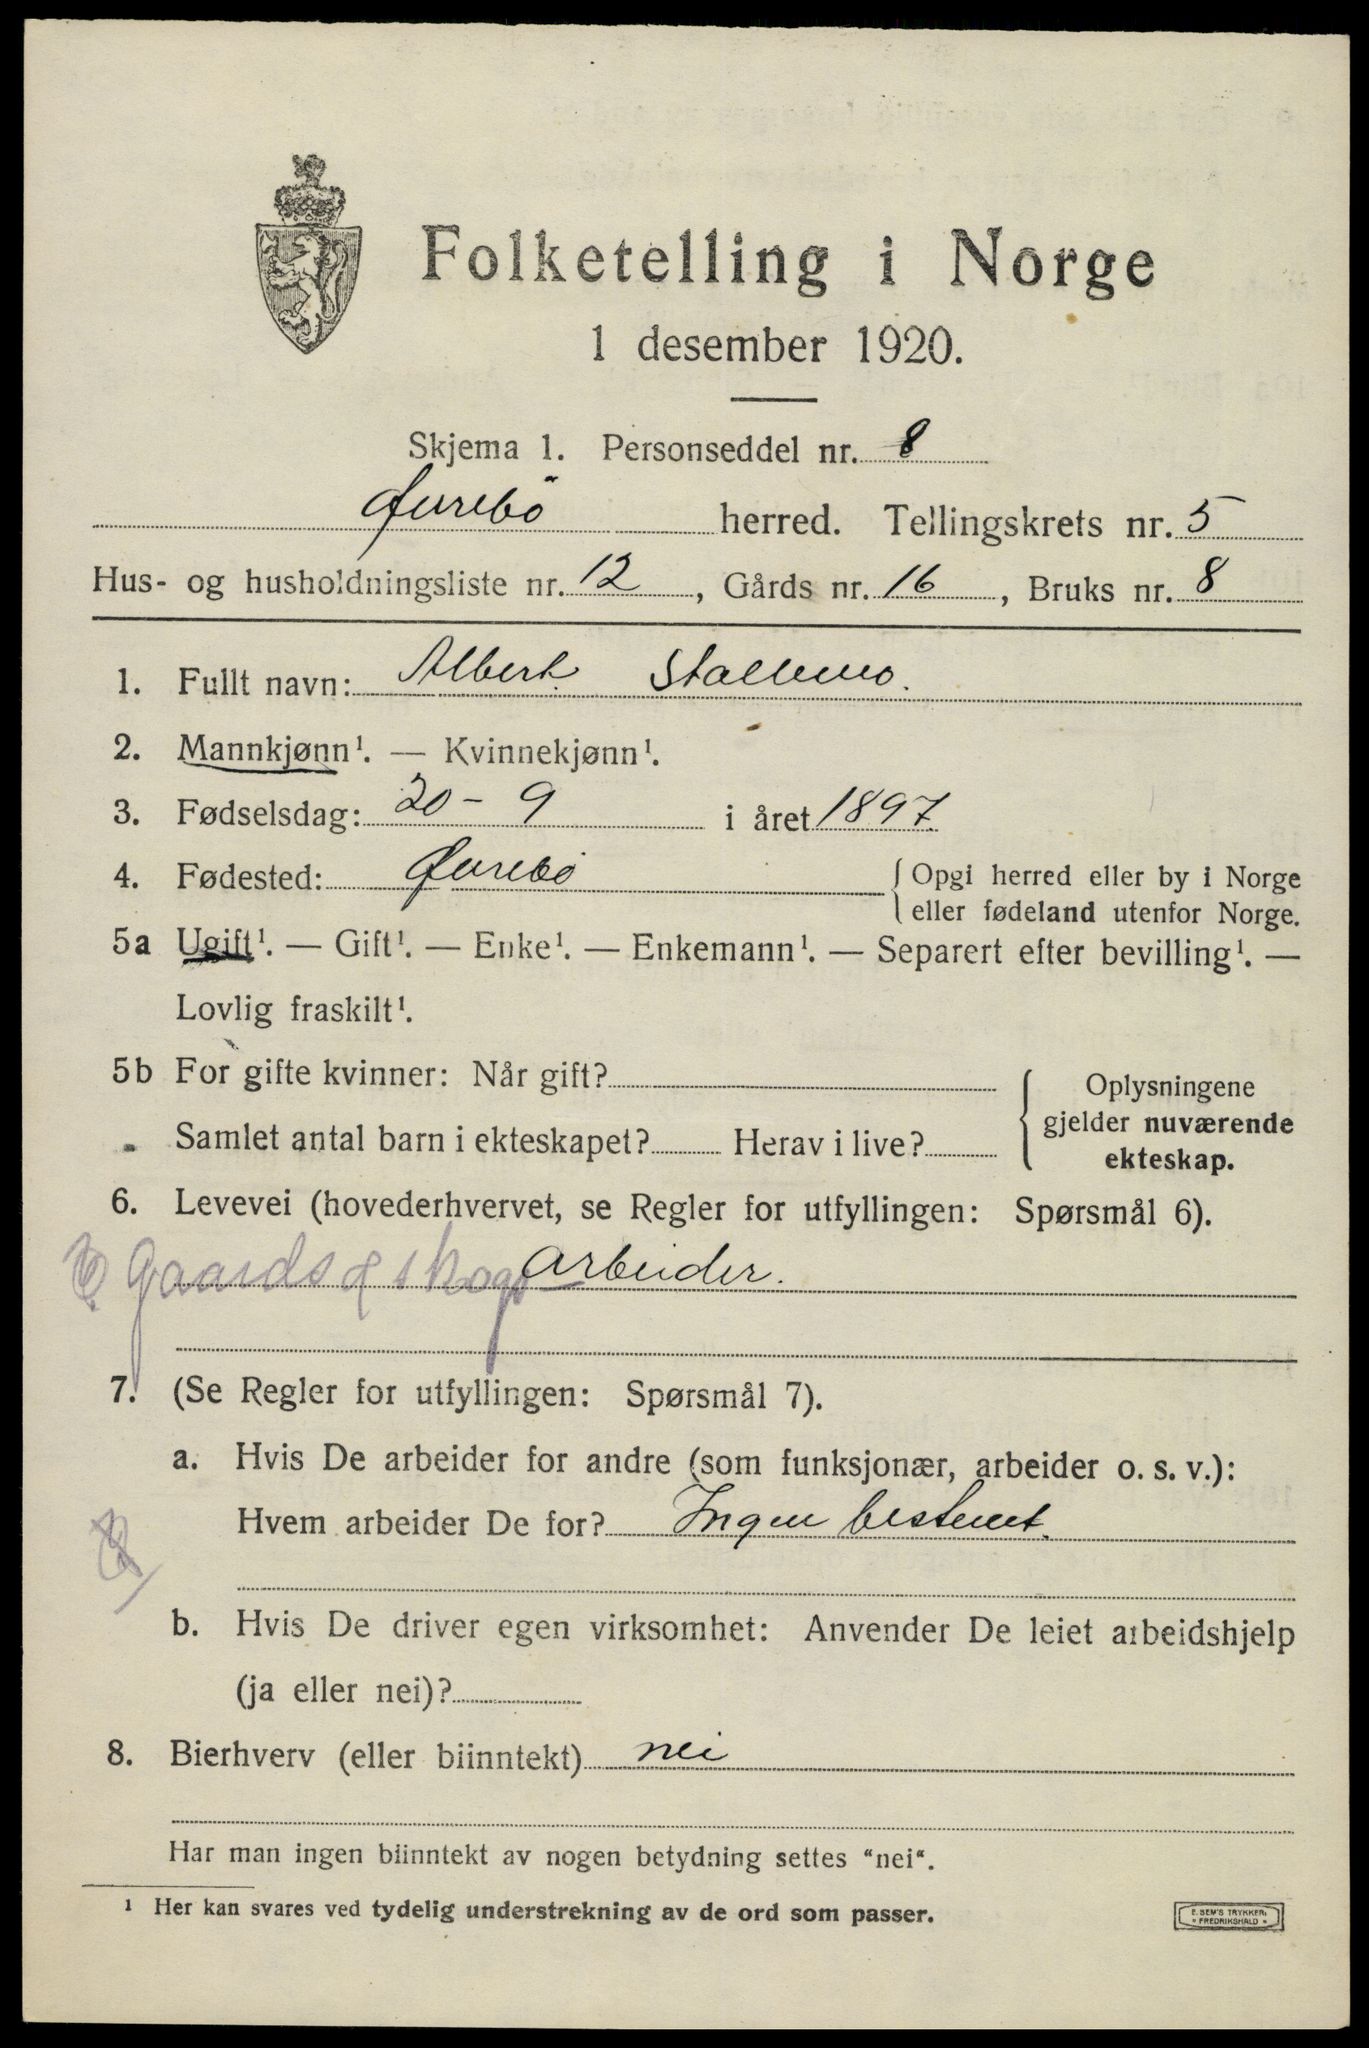 Folketelling i Norge
1 desember 1920.
Skjema 1. Personseddel nr. 8
Øurebö herred. Tellingskrets nr. 5
Hus- og husholdningsliste nr. 12, Gårds nr. 16, Bruks nr. 8
1. Fullt navn: Albert Stallemo.
2. Mannkjønn¹. — Kvinnekjønn¹.
3. Fødselsdag: 20 - 9 i året 1897.
4. Fødested: Øurebö { Opgi herred eller by i Norge
eller fødeland utenfor Norge.
5a Ugift¹. — Gift¹. — Enke¹. — Enkemann¹. — Separert efter bevilling¹. —
Lovlig fraskilt¹.
5b For gifte kvinner: Når gift?
Samlet antal barn i ekteskapet? Herav i live?
Oplysningene
gjelder nuværende
ekteskap.
6. Levevei (hovederhvervet, se Regler for utfyllingen: Spørsmål 6).
Gaards og skogs arbeider.
7. (Se Regler for utfyllingen: Spørsmål 7).
a. Hvis De arbeider for andre (som funksjonær, arbeider o. s. v.):
Hvem arbeider De for? Ingen bestemt.
b. Hvis De driver egen virksomhet: Anvender De leiet arbeidshjelp
(ja eller nei)?
8. Bierhverv (eller biinntekt) nei
Har man ingen biinntekt av nogen betydning settes "nei".
¹ Her kan svares ved tydelig understrekning av de ord som passer.
E. SEM'S TRYKKERI
FREDRIKSHALD